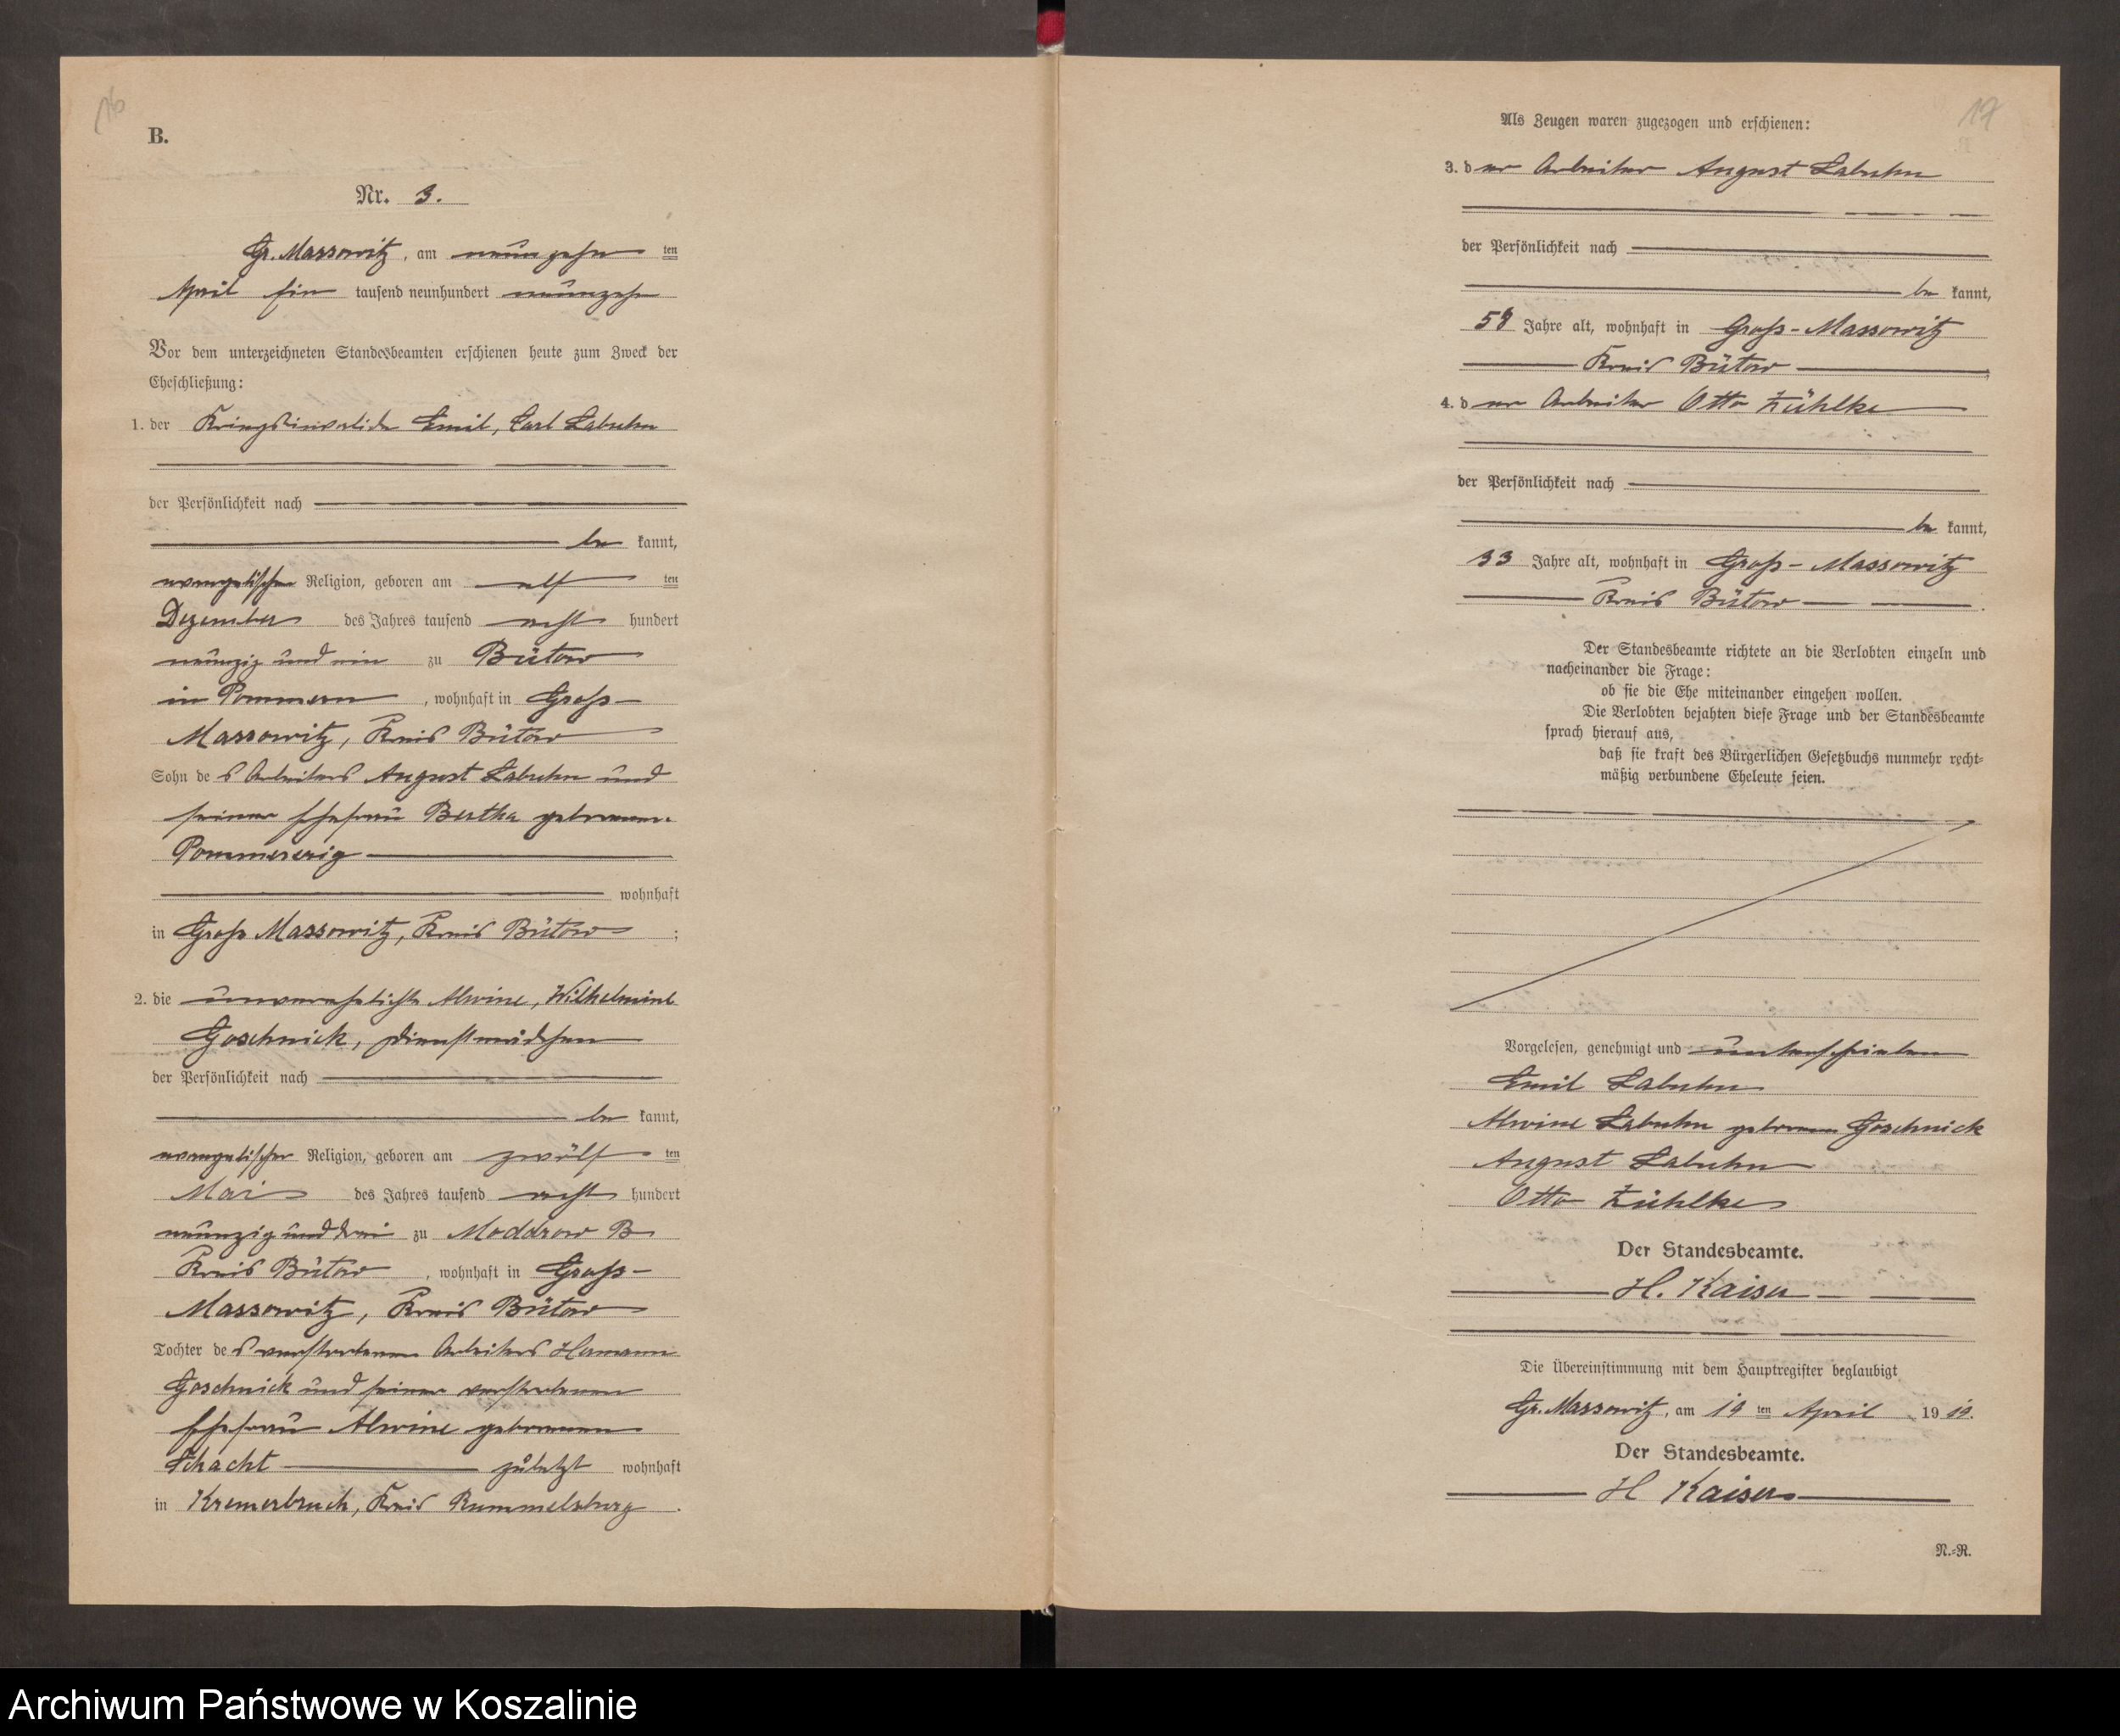 16
B.
Nr. 3.
Gr. Massowitz, am neunzehn ten
April Ein tausend neunhundert neunzehn
Vor dem unterzeichneten Standesbeamten erschienen heute zum Zweck der
Eheschließung:
1. der Kriegsinvalide Emil, Carl Labuhn
der Persönlichkeit nach
be kannt,
evangelischer Religion, geboren am elf ten
Dezember des Jahres tausend acht hundert
neunzig und ein zu Bütow
in Pommern, wohnhaft in Groß-
Massowitz, Kreis Bütow
Sohn des Arbeiters August Labuhn und
seiner Ehefrau Bertha geborenen
Pommerenig
wohnhaft
in Groß Massowitz, Kreis Bütow;
2. die unverehelichte Alwine, Wilhelmine
Goschnick, Dienstmädchen
der Persönlichkeit nach
be kannt,
evangelischer Religion, geboren am zwölf ten
Mai des Jahres tausend acht hundert
neunzig und drei zu Moddrow B
Kreis Bütow, wohnhaft in Groß-
Massowitz, Kreis Bütow
Tochter des verstorbenen Arbeiters Hermann
Goschnick und seiner verstorbenen
Ehefrau Alwine geborenen
Schacht zuletzt wohnhaft
in Kremerbruch, Kreis Rummelsburg.
17
Als Zeugen waren zugezogen und erschienen:
3. der Arbeiter August Labuhn
der Persönlichkeit nach
be kannt,
58 Jahre alt, wohnhaft in Groß-Massowitz
Kreis Bütow;
4. der Arbeiter Otto Zühlke
der Persönlichkeit nach
be kannt,
33 Jahre alt, wohnhaft in Groß-Massowitz
Kreis Bütow.
Der Standesbeamte richtete an die Verlobten einzeln und
nacheinander die Frage:
ob sie die Ehe miteinander eingehen wollen.
Die Verlobten bejahten diese Frage und der Standesbeamte
sprach hierauf aus,
daß sie kraft des Bürgerlichen Gesetzbuchs nunmehr recht-
mäßig verbundene Eheleute seien.
Vorgelesen, genehmigt und unterschrieben
Emil Labuhn
Alwine Labuhn geborene Goschnick
August Labuhn
Otto Zühlke
Der Standesbeamte.
H. Kaiser
Die Übereinstimmung mit dem Hauptregister beglaubigt
Gr. Massowitz, am 19 ten April 1919.
Der Standesbeamte.
H Kaiser
N.-R.
Archiwum Państwowe w Koszalinie